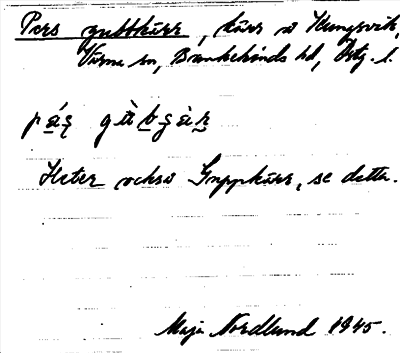 Pers gubbkärr, kärr å Kungsvik,
Värna sn, Bankekinds hd, Östg. l.
Heter också Gruppkärr, se detta.
Maja Nordlund 1945.